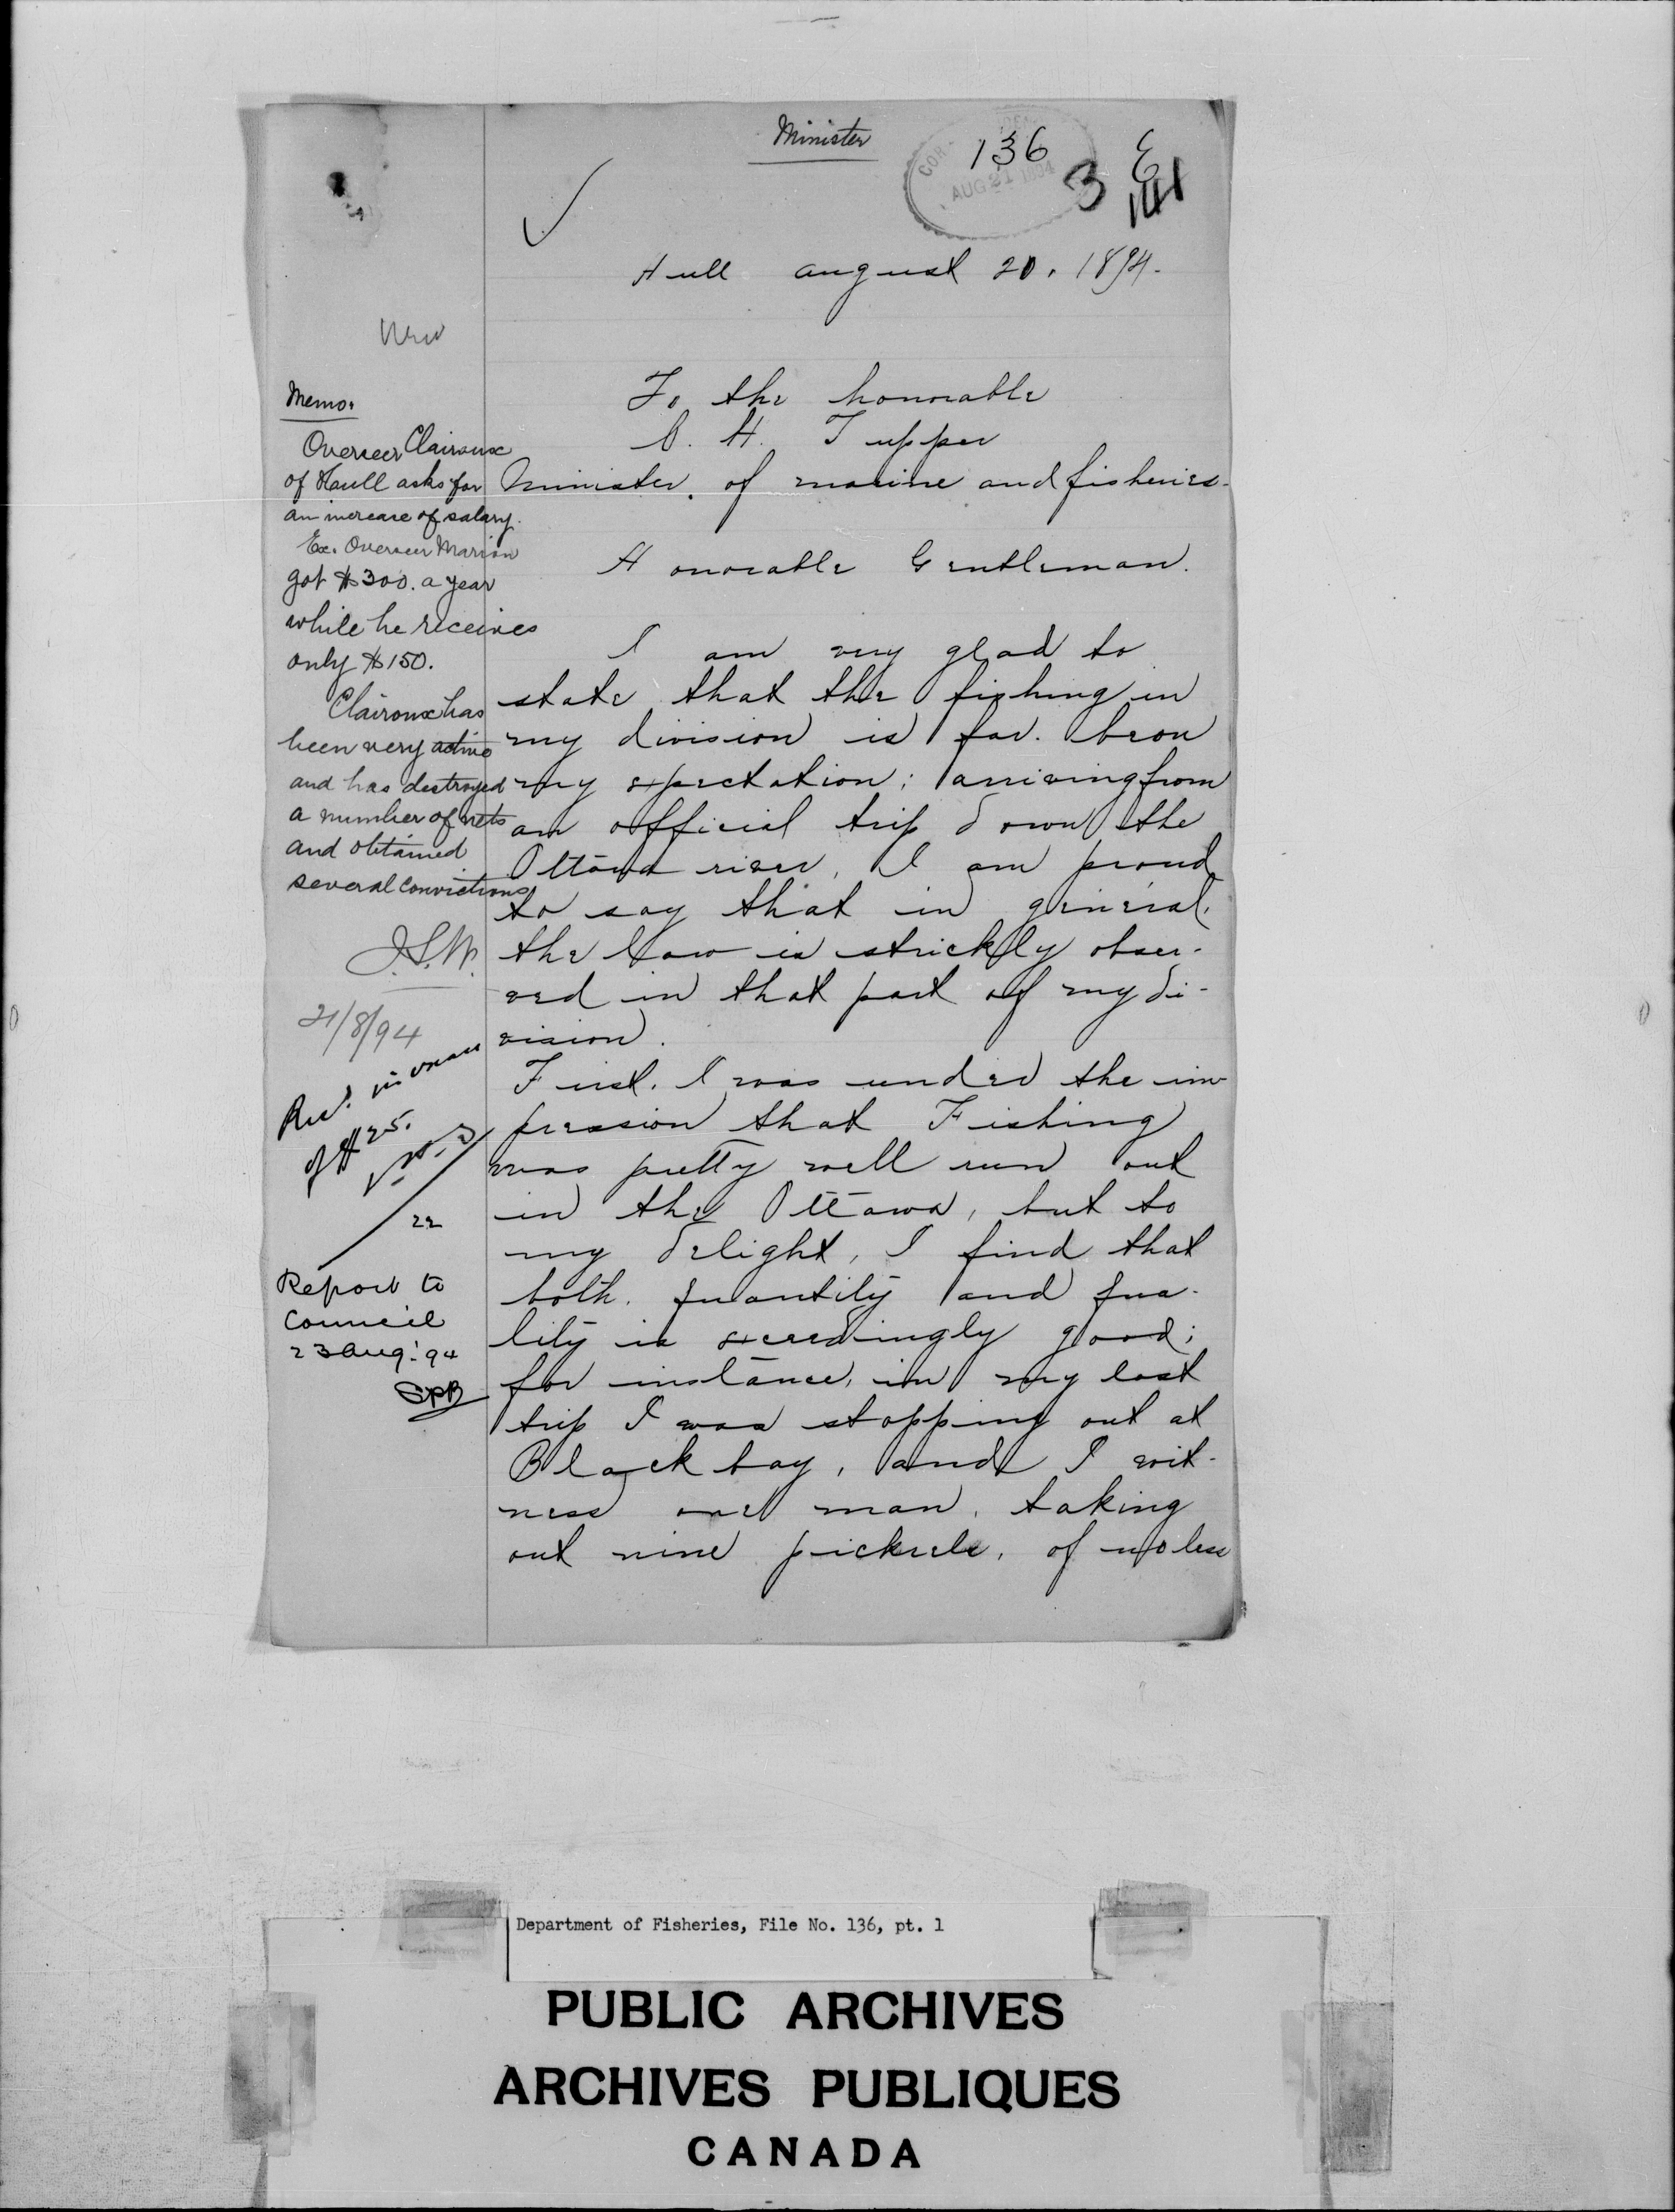 Minister
136
3
COR
AUG 21 1894
Hull august 20. 1894.
To the honorable
C. H. Tupper
Minister. of marine and fisheries.
Honorable Gentleman.
I am very glad to
state that the fishing in
my division is far. beon
my expectation; arriving from
an official trip down the
Ottawa river, I am proud
to say that in general,
the law is strickly obser-
ved in that part of my di-
vision.
First. I was under the im-
pression that Fishing
was pretty well run out
in the Ottawa, but to
my delight, I find that
both. quantity and qua-
lity is exceedingly good;
for instance, in my last
trip I was stopping out at
Black bay, and I wit-
ness one man, taking
out nine pickrels, of no less
Memo.
Overseer Clairoux
of Hull asks for
an increase of salary.
Ex. Overseer Marion
got $300. a year
while he receives
only $150.
Clairoux has
been very active
and has destroyed
a number of nets
and obtained
several convictions
21/8/94
of $25.
22
Report to
Council
23 Aug: 94
Department of Fisheries, File No. 136, pt. 1
PUBLIC ARCHIVES
ARCHIVES PUBLIQUES
CANADA